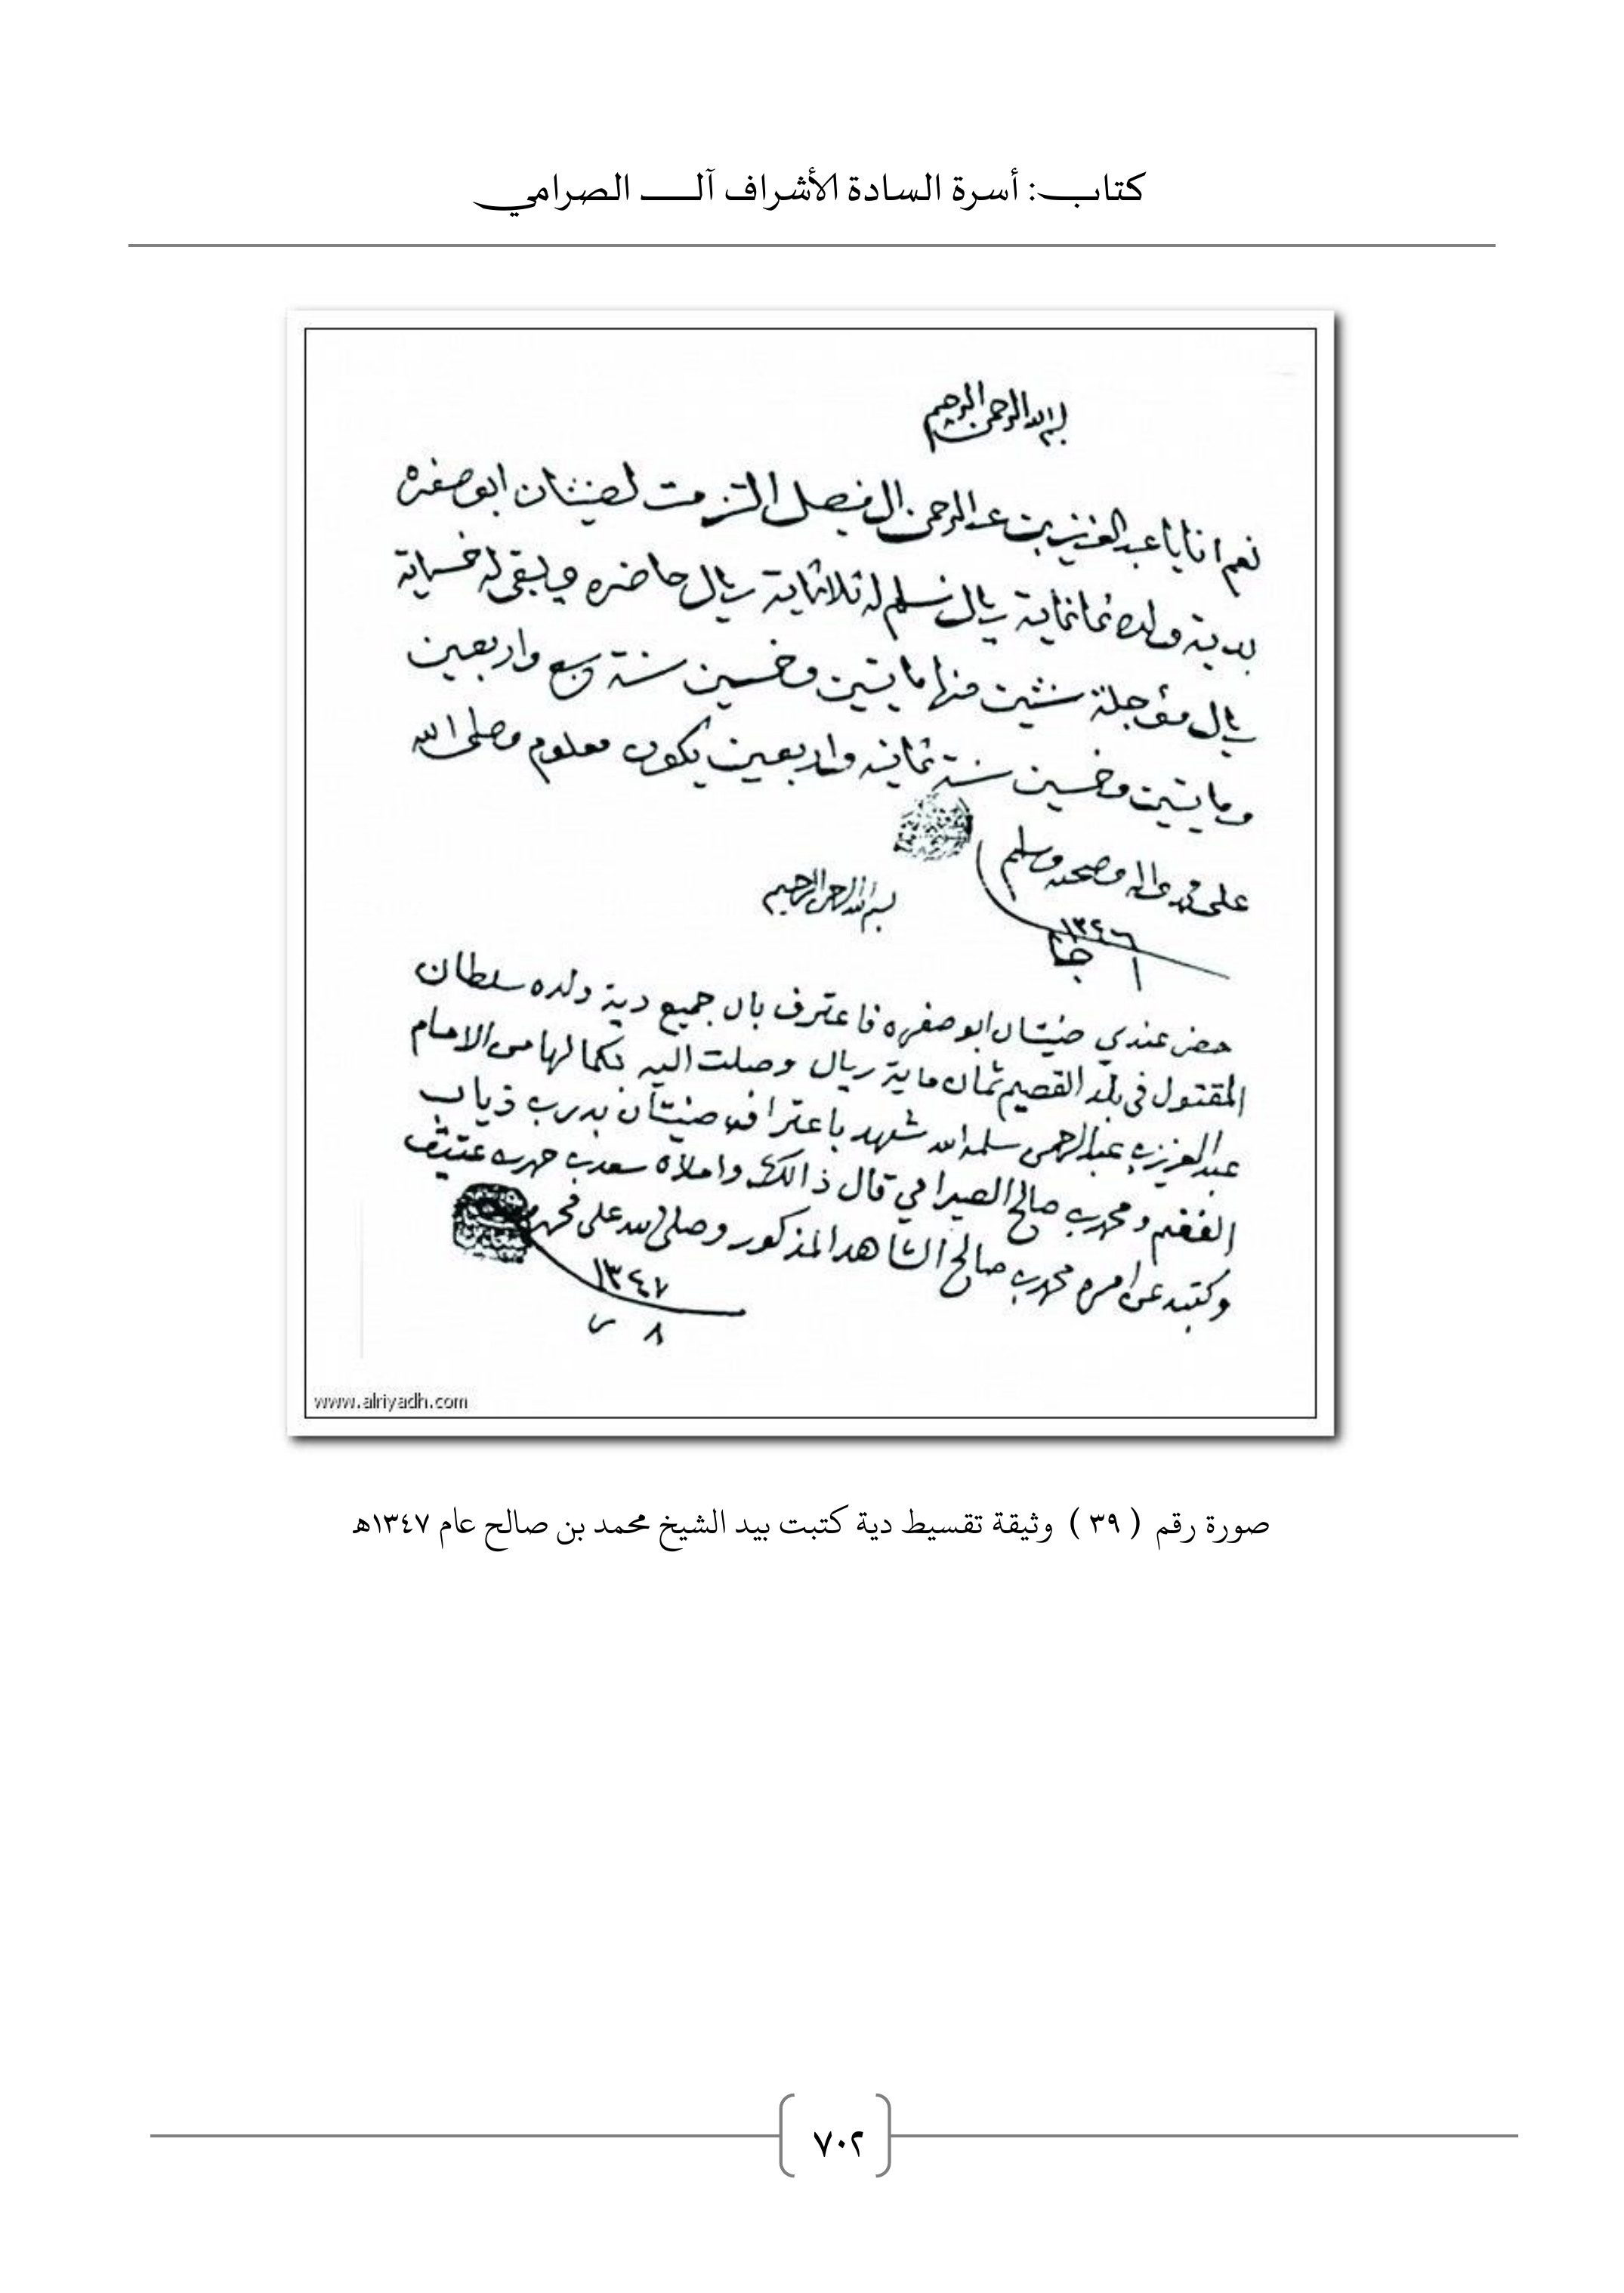 كتاب: أسرة السادة الأشراف آل الصرامي
بسم الله الرحمن الرحيم
نعم انا يا عبدالعزيز بن عبدالرحمن ال فيصل التزمت لضيتان ابو صفره
بدية ولده ثمانماية ريال نسلم له ثلاثماية ريال حاضره ويبقى له خمسماية
ريال مؤجلة سنتين منها مايتين وخمسين سنة سبع واربعين
ومايتين وخمسين سنة ثمانيه واربعين يكون معلوم وصلى الله
على محمد واله وصحبه وسلم
١٣٤٦
١ جا
بسم الله الرحمن الرحيم
حضر عندي ضيتان ابو صفره فاعترف بان جميع دية ولده سلطان
المقتول في بلد القصيم ثمان ماية ريال وصلت اليه بكمالها من الامام
عبدالعزيز بن عبدالرحمن سلمه الله شهد باعترافه ضيتان بدر بن ذياب
الفغم ومحمد بن صالح الصيرامي قال ذالك واملاه سعد بن حمد بن عتيق
وكتبه عن امره محمد بن صالح الشاهد المذكور وصلى الله على محمد
١٣٤٧
٨ ر
www.alriyadh.com
صورة رقم ( ٣٩ ) وثيقة تقسيط دية كتبت بيد الشيخ محمد بن صالح عام ١٣٤٧هـ
٧٠٢